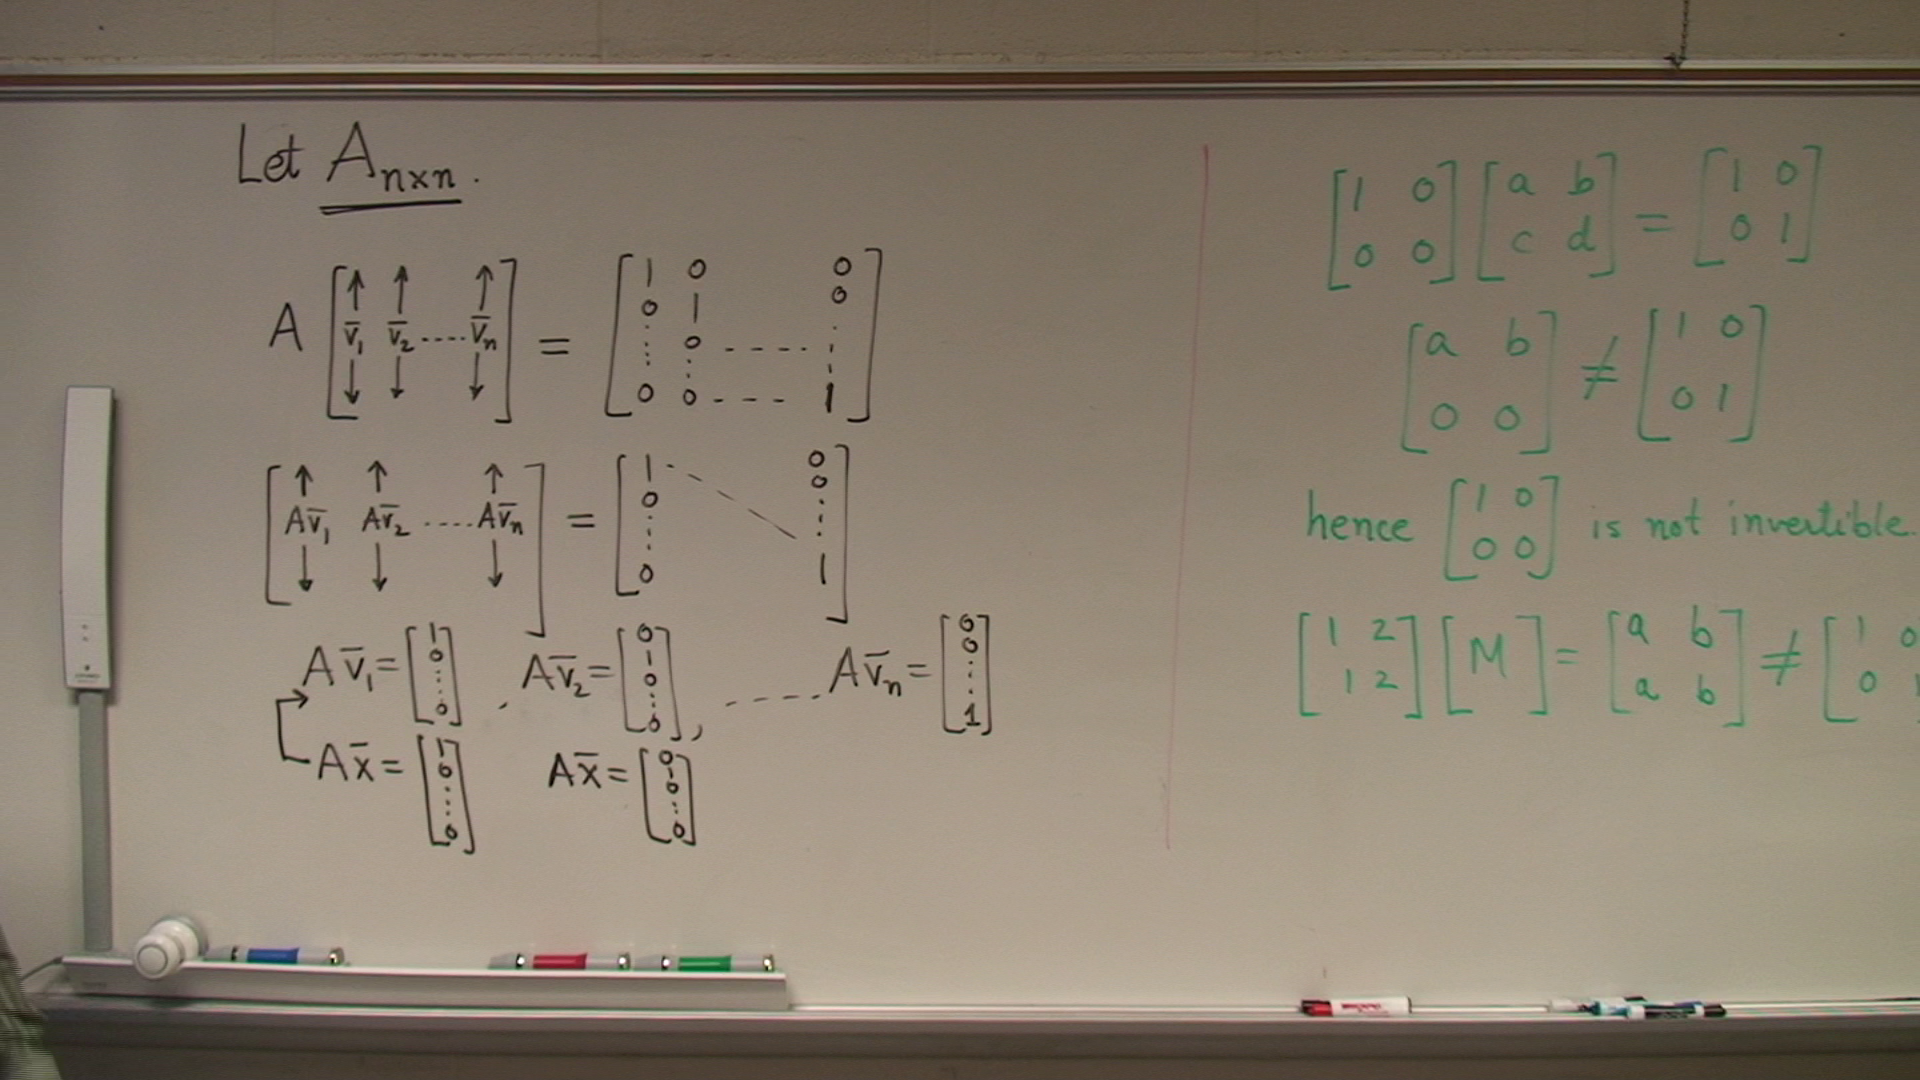 Let Aₙₓₙ.
A [↑ v̅₁ ↓ ↑ v̅₂ ↓ ..... ↑ v̅ₙ ↓] = [1 0 0
0 1 0
⋮ 0 ----- ⋮
0 0 --- 1]
[↑ Av̅₁ ↓ ↑ Av̅₂ ↓ ..... ↑ Av̅ₙ ↓] = [1 0
0 0
⋮ ⋮
0 1]
Av̅₁ = [1 0 ⋮ 0] , Av̅₂ = [0 1 0 ⋮ 0], ----- Av̅ₙ = [0 0 ⋮ 1]
Ax̅ = [1 0 ⋮ 0] Ax̅ = [0 1 0 ⋮ 0]
[1 0; 0 0] [a b; c d] = [1 0; 0 1]
[a b; 0 0] ≠ [1 0; 0 1]
hence [1 0; 0 0] is not invertible.
[1 2; 1 2] [M] = [a b; a b] ≠ [1 0; 0 1